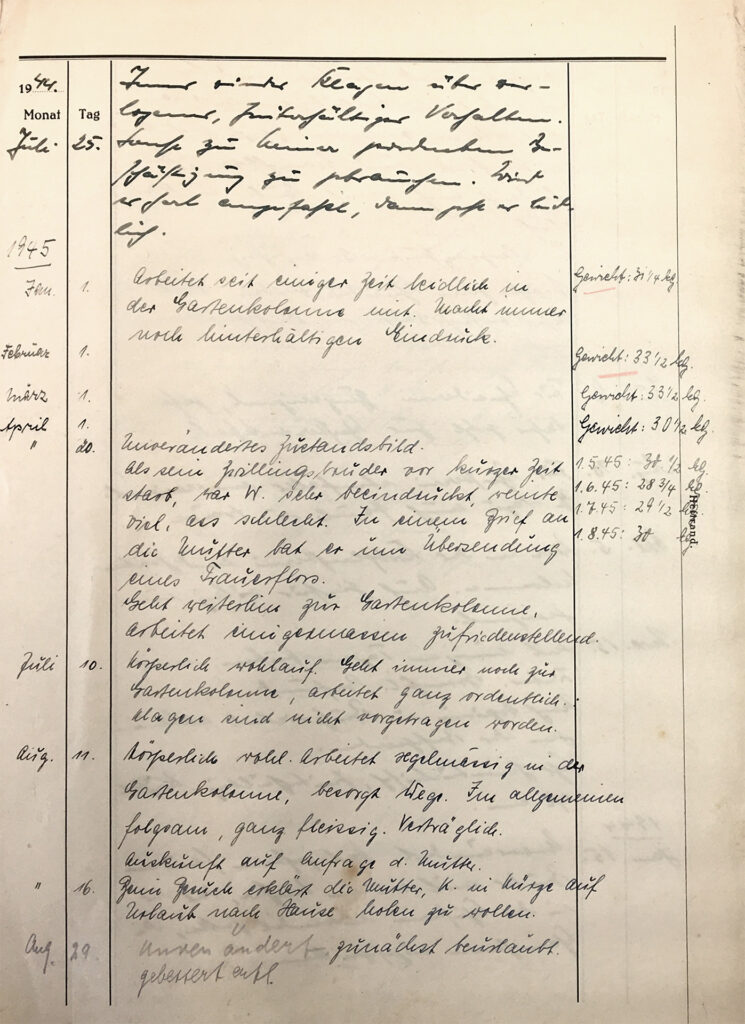 1944.
Monat Tag
Juli 25. Immer wieder Klagen über ver-
logenes, hinterhältiges Verhalten.
zu keiner Be-
schäftigung zu gebrauchen. Wird
er hart angefaßt, dann geht er leid-
lich.
1945
Jan. 1. Arbeitet seit einiger Zeit leidlich in Gewicht: 31 1/4 kg
der Gartenkolonne mit. Macht immer
noch hinterhältigen Eindruck.
Februar 1. Gewicht: 33 1/2 kg.
März 1. Gewicht: 33 1/2 kg.
April 1. Gewicht: 30 1/2 kg.
" 20. Unverändertes Zustandsbild.
Als sein Zwillingsbruder vor kurzer Zeit 1.5.45: 30 1/2 kg.
starb, war W. sehr beeindruckt, weinte 1.6.45: 28 3/4 kg.
viel, ass schlecht. In einem Brief an 1.7.45: 29 1/2 kg.
die Mutter bat er um Übersendung 1.8.45: 30 kg
eines Trauerflors.
Geht weiterhin zur Gartenkolonne,
arbeitet einigermassen zufriedenstellend.
Juli 10. Körperlich wohlauf. Geht immer noch zur
Gartenkolonne, arbeitet ganz ordentlich.
Klagen sind nicht vorgetragen worden.
Aug. 11. Körperlich wohl. Arbeitet regelmässig in der
Gartenkolonne, besorgt Wege. Im allgemeinen
folgsam, ganz fleissig. Verträglich.
Auskunft auf Anfrage d. Mutter.
" 16. Beim Besuch erklärt die Mutter, K. in Kürze auf
Urlaub nach Hause holen zu wollen.
Aug. 29. unverändert zunächst beurlaubt.
gebessert entl.
Heftrand.